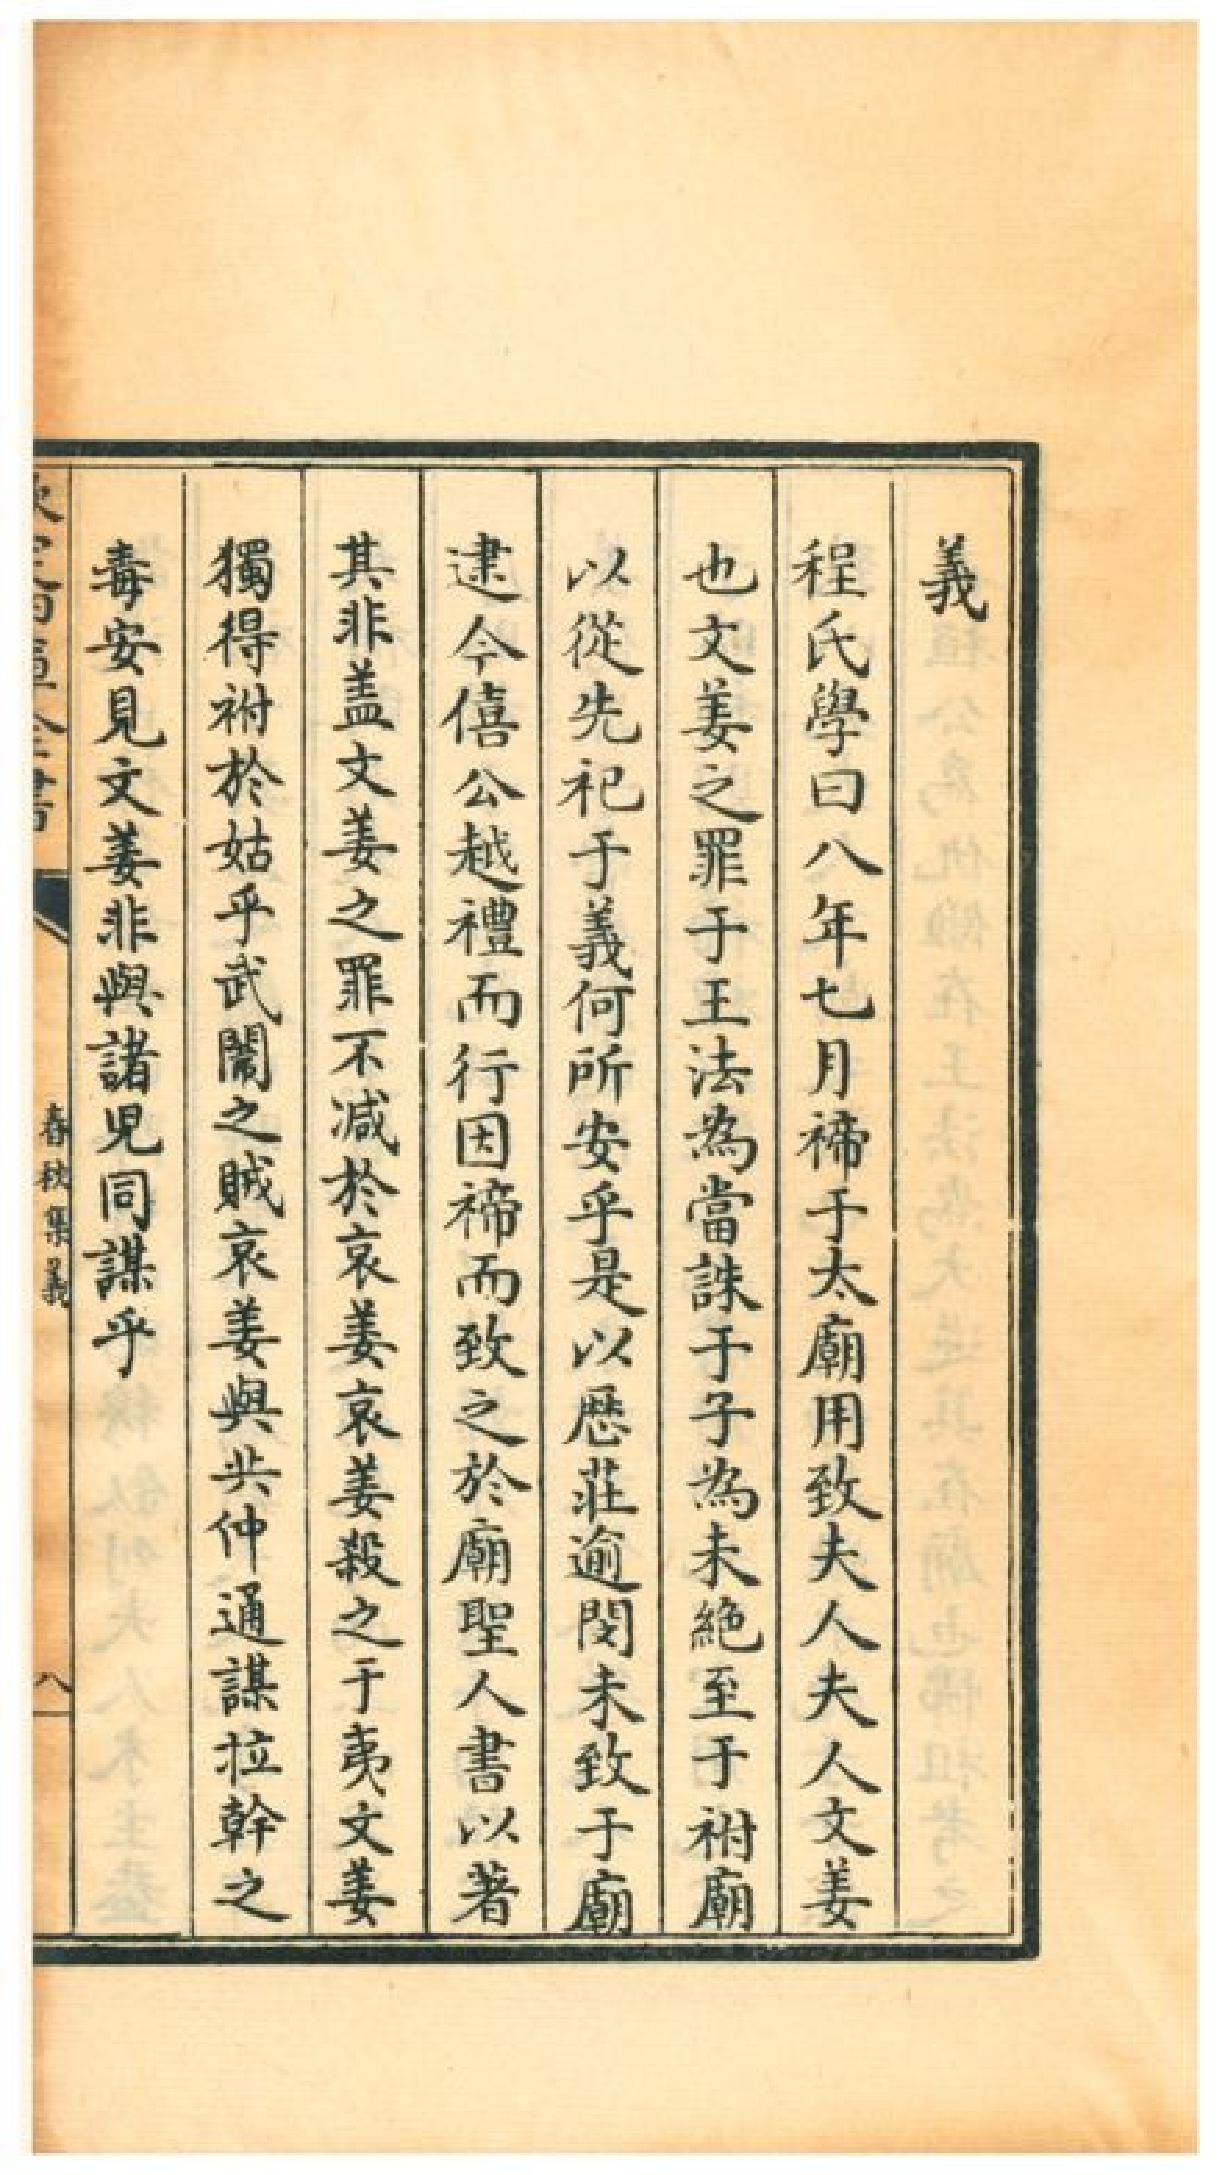 義
程氏學曰八年七月禘于太廟用致夫人夫人文姜
也文姜之罪于王法為當誅于子為未絶至于祔廟
以從先祀于義何所安乎是以歴莊逾閔未致于廟
逮今僖公越禮而行因禘而致之於廟聖人書以著
其非盖文姜之罪不减於哀姜哀姜殺之于夷文姜
獨得祔於姑乎武闈之賊哀姜與共仲通謀拉幹之
毒安見文姜非與諸兒同謀乎
欽定四庫全書
春秋集義
八